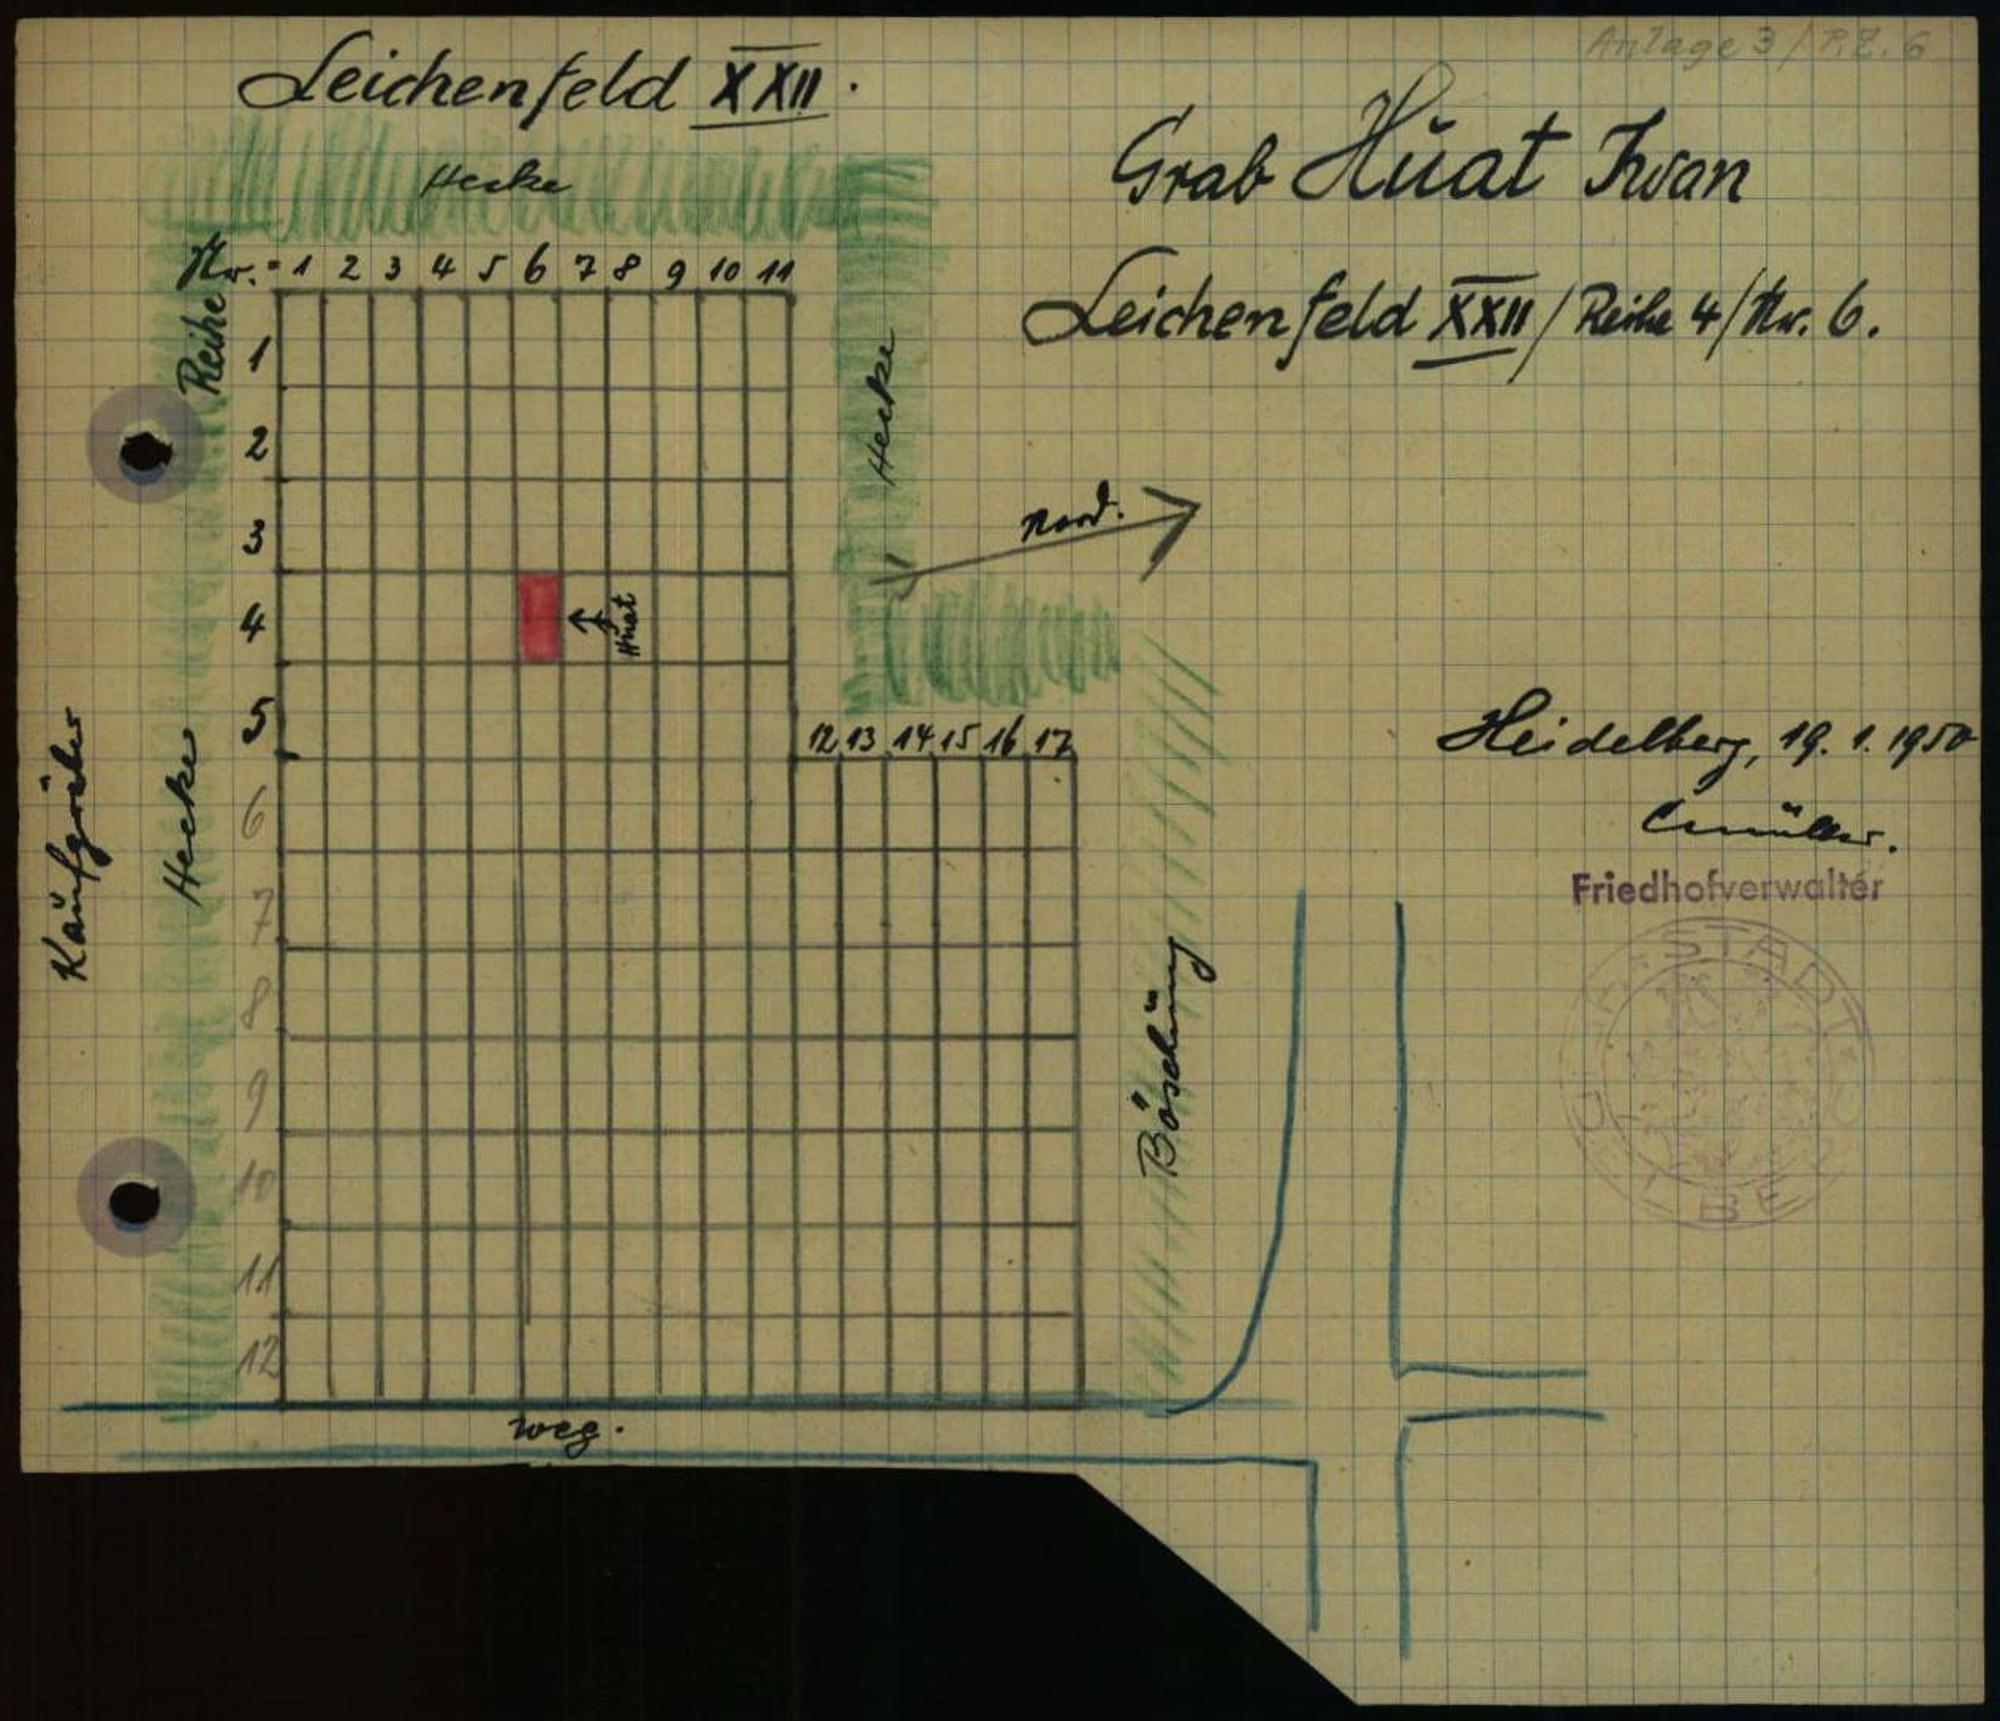 Anlage 3 / P.Z. 6
Leichenfeld XXII.
Hecke
Grab Huat Iwan
Leichenfeld XXII / Reihe 4 / Nr. 6.
Nr. 1 2 3 4 5 6 7 8 9 10 11
Reihe
1
2
3
4
5
6
7
8
9
10
11
12
Hecke
Nord.
Huat
12 13 14 15 16 17
Kaufgräber
Hecke
Böschung
Heidelberg, 19. 1. 1950
Friedhofverwalter
STADT
weg.